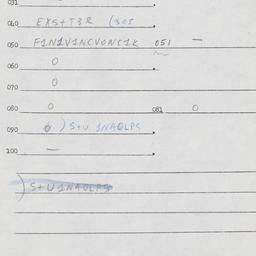 031
040 EXS+T3R (305
050 F1N1V1NCVONC1K 051 —
060 0
070 0
080 0 081 0
090 0 ) S+U 1NAOLPC
100 —
) S+U1NAOLPS